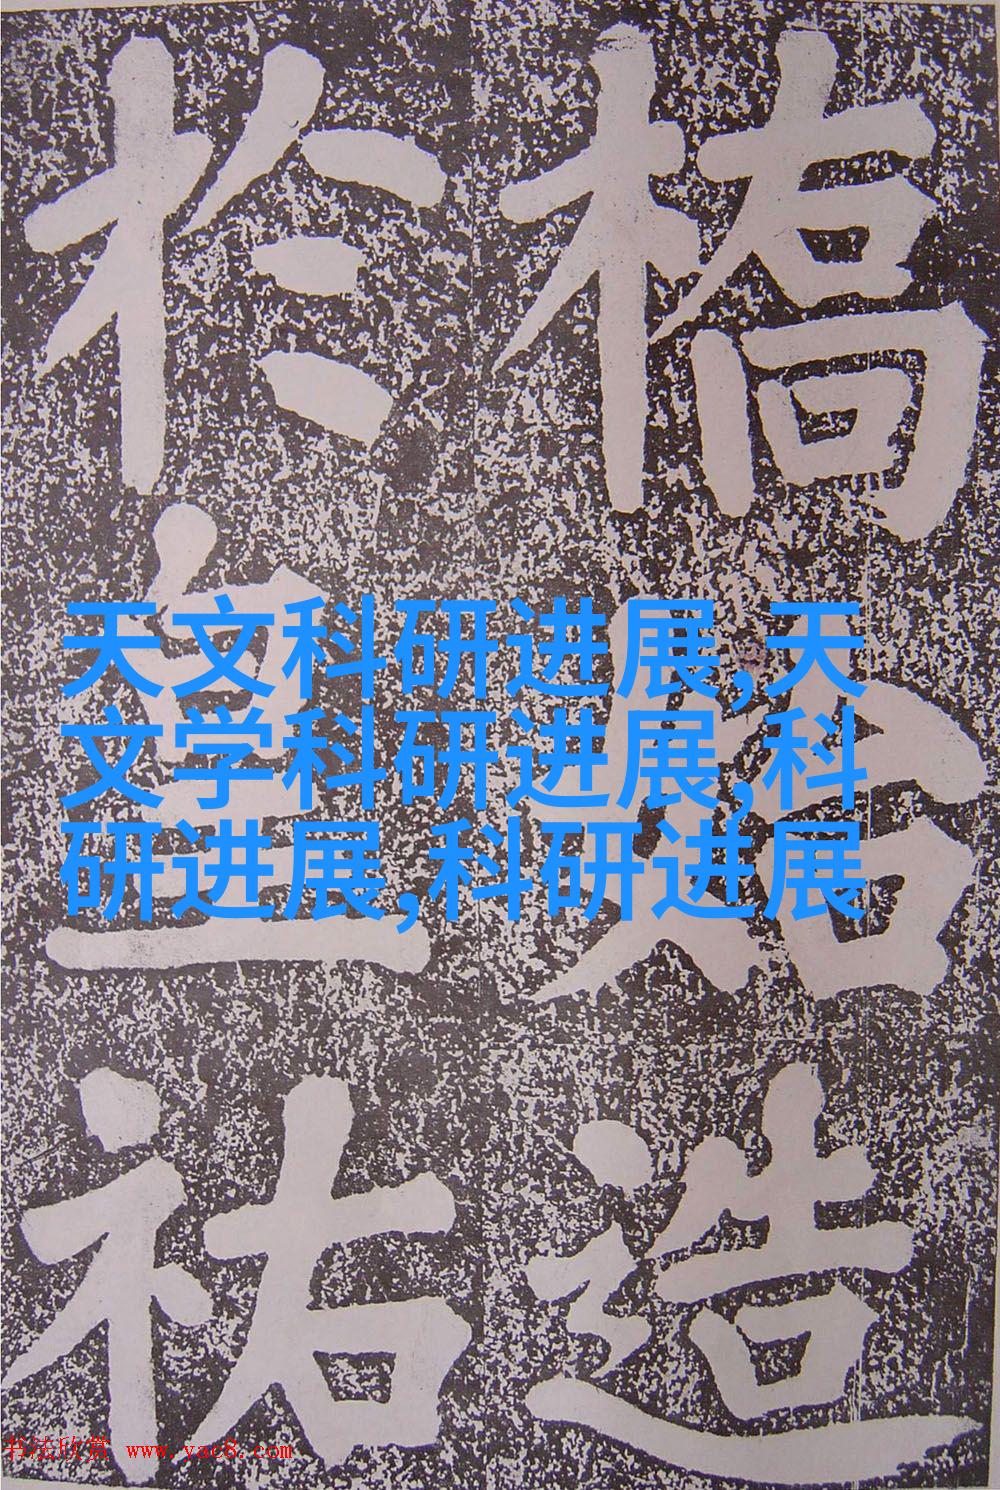 橋始造
於皇祐
天文科研进展,天
文学科研进展,科
研进展,科研进展
书法欣赏 www.yac8.com